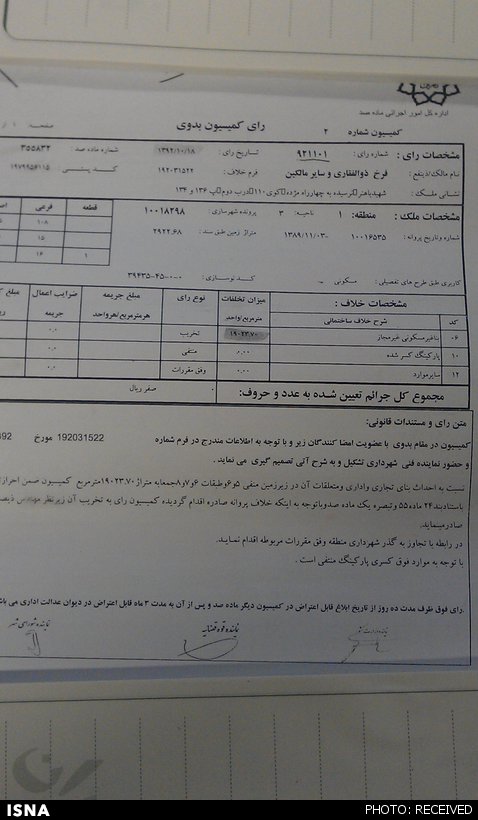 اداره کل امور اجرائی ماده صد
کمیسیون شماره ۲
رای کمیسیون بدوی
صفحه ۱ از
مشخصات رای : شماره رای : ۹۲۱۱۰۱ تاریخ رای : ۱۳۹۲/۱۰/۱۸ شماره ماده صد : ۳۵۵۸۳۲
نام مالک/ذینفع : فرخ ذوالفقاری و سایر مالکین فرم خلاف : ۱۹۲۰۳۱۵۲۲ کد پستی : ۱۹۷۹۹۵۶۱۱۵
نشانی ملک : شهیدباهنر نرسیده به چهارراه مژده کوی ۱۱۰ درب دوم پ ۱۳۶ و ۱۳۴
مشخصات ملک : منطقه: ۱ ناحیه: ۳ پرونده شهرسازی: ۱۰۰۱۸۲۹۸
شماره وتاریخ پروانه : ۱۰۰۱۶۵۳۵ -۱۳۸۹/۱۱/۰۳ متراژ زمین طبق سند : ۲۹۲۲.۶۸
قطعه فرعی
۱۰۸
۱۵
۱ ۱۶
کاربری طبق طرح های تفصیلی : مسکونی کد نوسازی : ۳۹۴۳۵-۴۵-۰-۰۰
مشخصات خلاف :
کد شرح خلاف ساختمانی میزان تخلفات مترمربع/واحد نوع رای مبلغ جریمه هرمترمربع/هرواحد ضرایب اعمال جریمه
۰۶ بناغیرمسکونی غیرمجاز ۱۹۰۲۳.۷۰ تخریب ۰.۰
۱۰ پارکینگ کسر شده ۰.۰۰ منتفی ۰.۰
۱۲ سایرموارد ۰.۰۰ وفق مقررات ۰.۰
مجموع کل جرائم تعیین شده به عدد و حروف: ۰ صفر ریال
متن رای و مستندات قانونی:
کمیسیون در مقام بدوی با عضویت امضا کنندگان زیر و با توجه به اطلاعات مندرج در فرم شماره 192031522 مورخ
و حضور نماینده فنی شهرداری تشکیل و به شرح آتی تصمیم گیری می نماید .
نسبت به احداث بنای تجاری واداری ومتعلقات آن در زیرزمین منفی ۵و۶وطبقات ۶و۷و۸جمعابه متراژ۱۹۰۲۳.۷۰مترمربع کمیسیون ضمن احراز
باستنادبند۲۴ ماده۵۵ وتبصره یک ماده صدوباتوجه به اینکه خلاف پروانه صادره اقدام گردیده کمیسیون رای به تخریب آن زیرنظر مهندس ذیصلاح
صادرمینماید.
در رابطه با تجاوز به گذر شهرداری منطقه وفق مقررات مربوطه اقدام نماید.
با توجه به موارد فوق کسری پارکینگ منتفی است .
رای فوق ظرف مدت ده روز از تاریخ ابلاغ قابل اعتراض در کمیسیون دیگر ماده صد و پس از آن به مدت ۳ ماه قابل اعتراض در دیوان عدالت اداری می باشد
نماینده وزارت کشور نماینده قوه قضائیه نماینده شورای شهر
ISNA PHOTO: RECEIVED